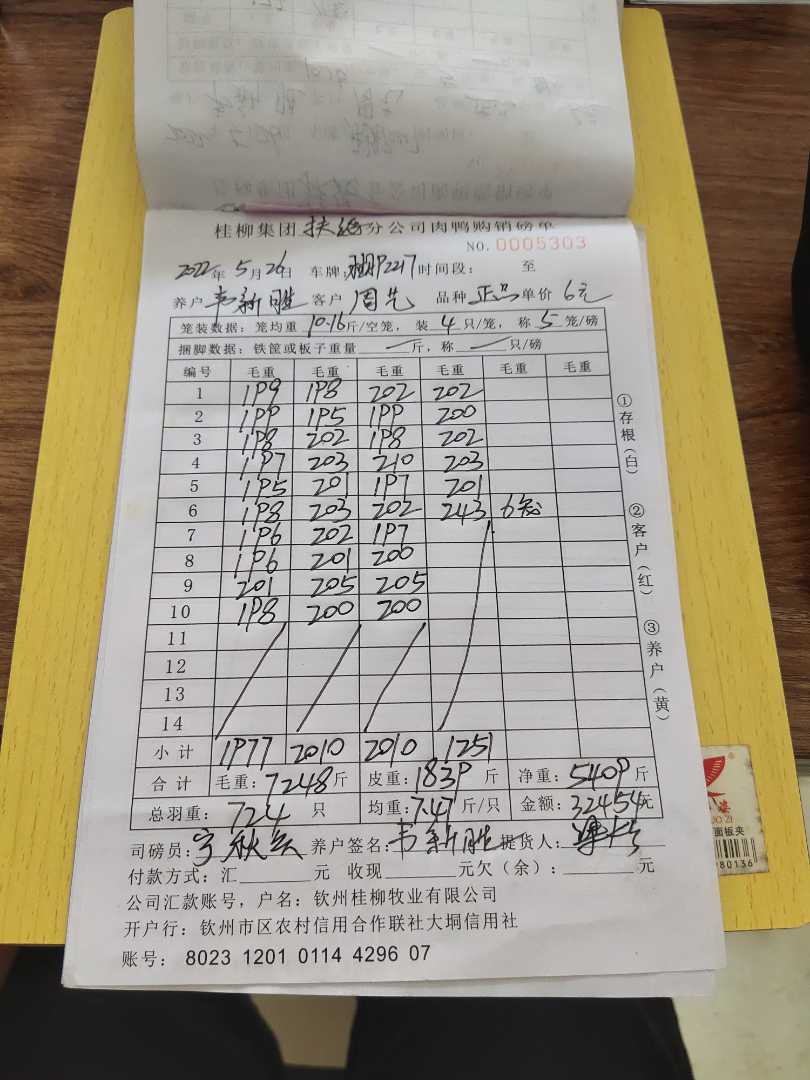 桂柳集团 扶绥 分公司肉鸭购销磅单
NO. 0005303
2022年 5月 26日 车牌: 时间段: 至
养户 韦新胜 客户 周先 品种 正品 单价 6元
笼装数据: 笼均重 10.16 斤/空笼, 装 4 只/笼, 称 5 笼/磅
捆脚数据: 铁筐或板子重量 斤, 称 只/磅
编号 毛重 毛重 毛重 毛重 毛重 毛重
1 199 198 202 202
2 199 195 199 200
3 198 202 198 202
4 197 203 210 203
5 195 201 197 201
6 198 203 202 243 6笼
7 196 202 197
8 196 201 200
9 201 205 205
10 198 200 200
11
12
13
14
小计 1977 2010 2010 1251
合计 毛重: 7248 斤 皮重: 1839 斤 净重: 5409 斤
总羽重: 724 只 均重: 7.47 斤/只 金额: 32454 元
司磅员: 养户签名: 韦新胜 提货人:
付款方式: 汇 元 收现 元欠(余): 元
公司汇款账号, 户名: 钦州桂柳牧业有限公司
开户行: 钦州市区农村信用合作联社大垌信用社
账号: 8023 1201 0114 4296 07
①存根(白)
②客户(红)
③养户(黄)
面板夹